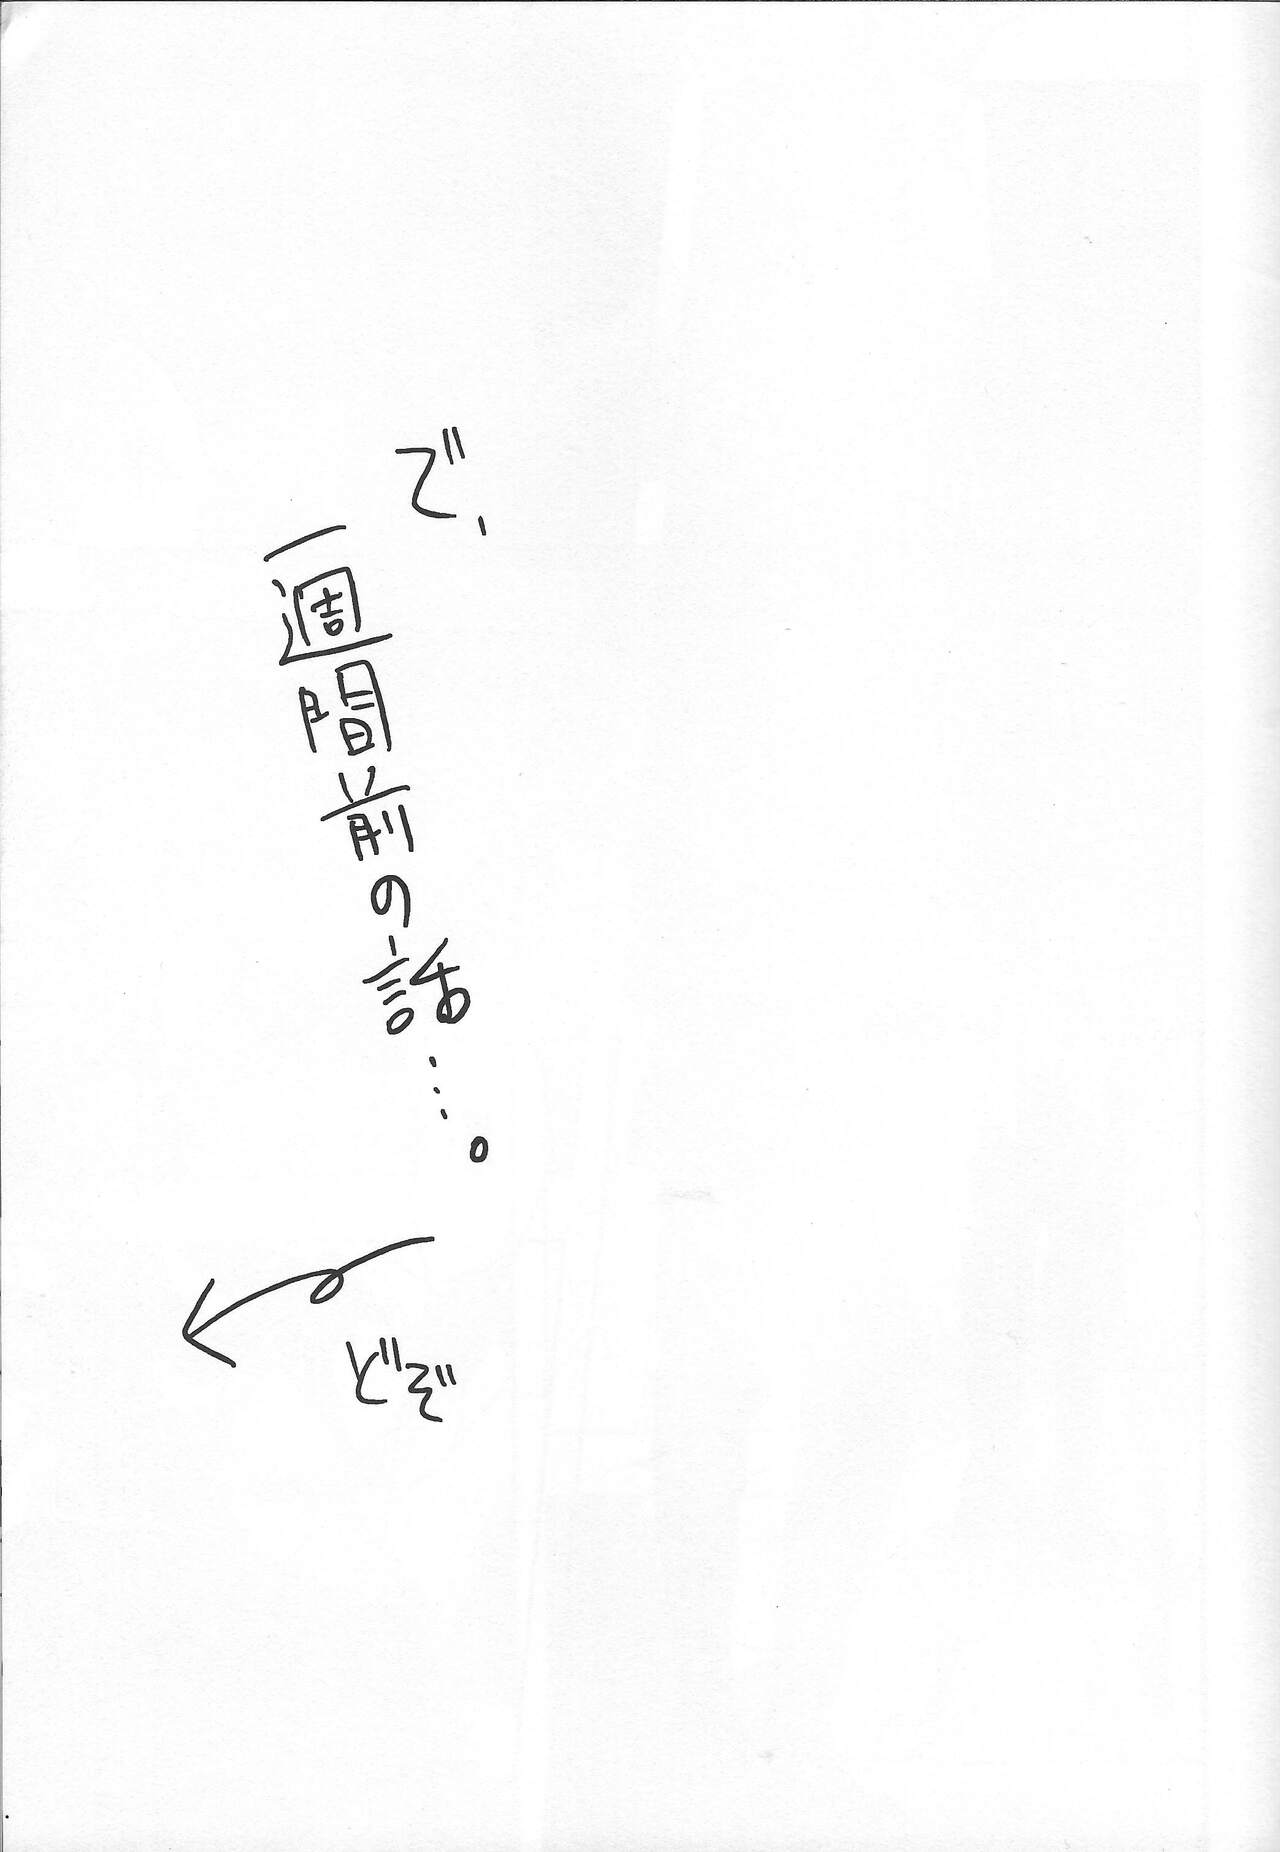 で、
一週間前の話…。
どぞ